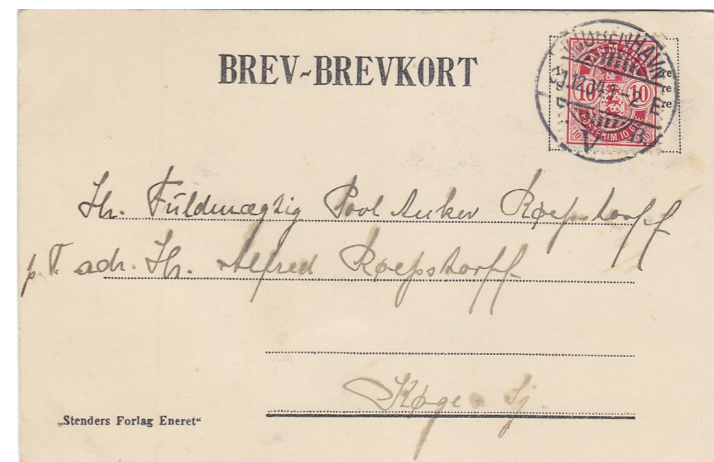 BREV-BREVKORT
KJØBENHAVN
31.12.04. 1-2 E
10 10
Hr. Fuldmægtig Povl Anker Roepstorff
p. T. adr. Hr. Alfred Roepstorff
Køge Sj.
„Stenders Forlag Eneret“